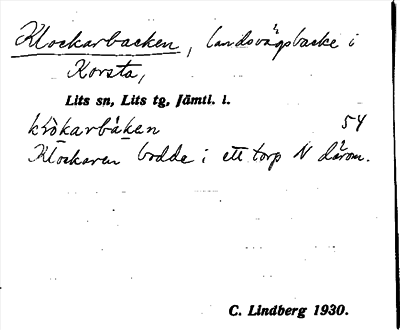 Klockarbacken, landsvägsbacke i
Korsta,
Lits sn, Lits tg, Jämtl. l.
54
Klockaren bodde i ett torp N därom.
C. Lindberg 1930.